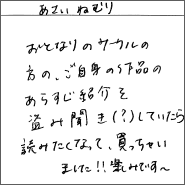 あさい ねむり
おとなりのサークルの
方の、ご自身の作品の
あらすじ紹介を
盗み聞き(?)していたら
読みたくなって、買っちゃい
ました!!楽しみです〜